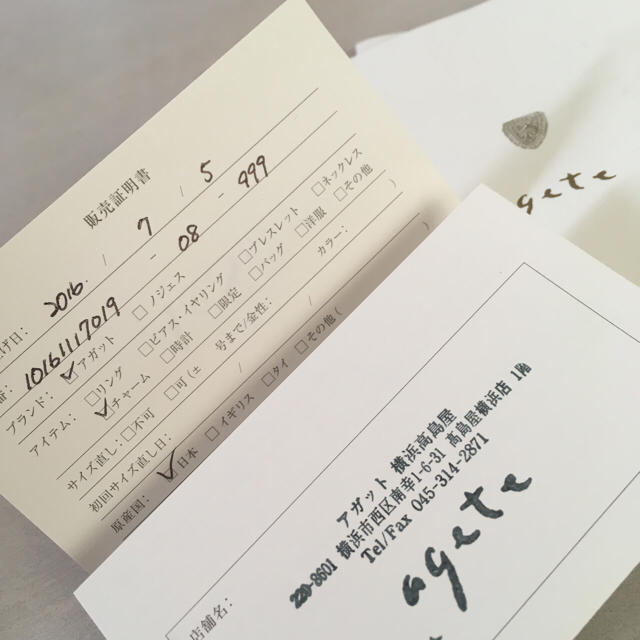 販売証明書
げ日: 2016. / 7 / 5
番: 10161117019 - 08 - 999
ブランド: ☑アガット □ノジェス
アイテム: □リング □ピアス・イヤリング □ブレスレット □ネックレス
☑チャーム □時計 □限定 □バッグ □洋服 □その他
サイズ直し: □不可 □可(± 号まで/金性: カラー: )
初回サイズ直し日: /
原産国: ☑日本 □イギリス □タイ □その他(
gete
アガット 横浜高島屋
220-8601 横浜市西区南幸1-6-31 髙島屋横浜店 1階
Tel/Fax 045-314-2871
agete
店舗名: